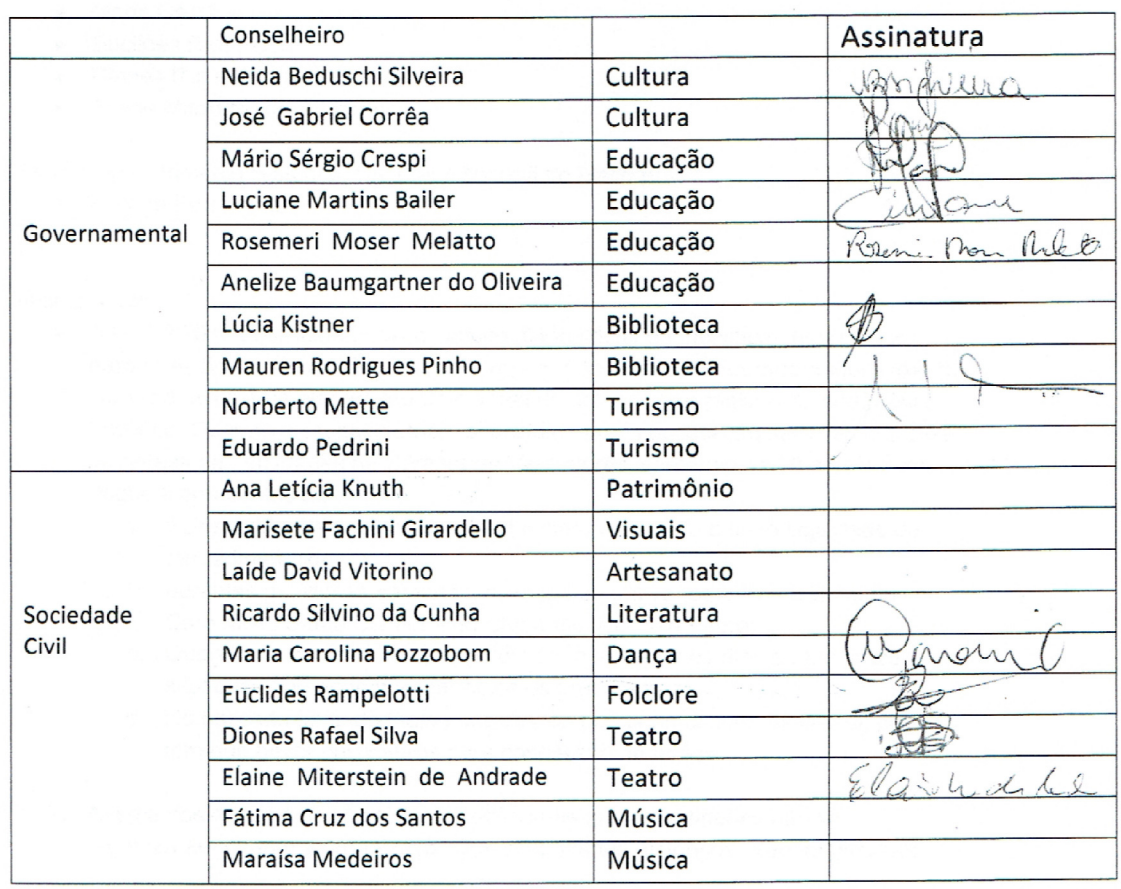 Conselheiro Assinatura
Neida Beduschi Silveira Cultura
José Gabriel Corrêa Cultura
Mário Sérgio Crespi Educação
Luciane Martins Bailer Educação
Governamental Rosemeri Moser Melatto Educação
Anelize Baumgartner do Oliveira Educação
Lúcia Kistner Biblioteca
Mauren Rodrigues Pinho Biblioteca
Norberto Mette Turismo
Eduardo Pedrini Turismo
Ana Letícia Knuth Patrimônio
Marisete Fachini Girardello Visuais
Laíde David Vitorino Artesanato
Sociedade Ricardo Silvino da Cunha Literatura
Civil Maria Carolina Pozzobom Dança
Euclides Rampelotti Folclore
Diones Rafael Silva Teatro
Elaine Miterstein de Andrade Teatro
Fátima Cruz dos Santos Música
Maraísa Medeiros Música